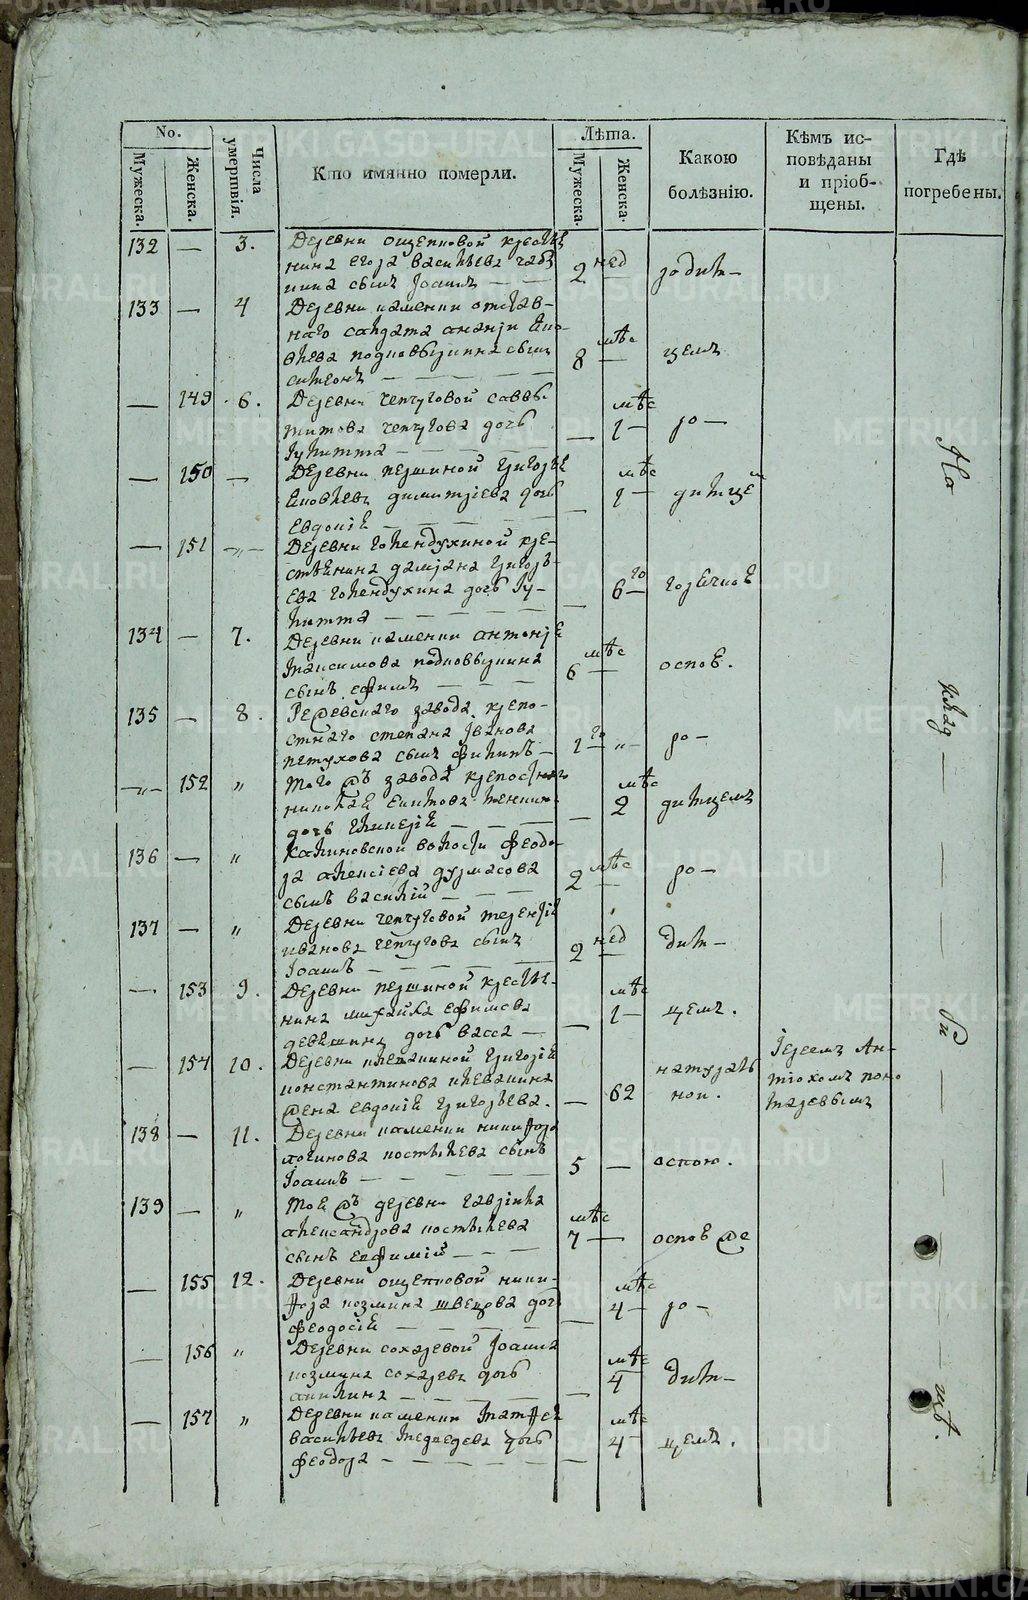 No.
Мужеска.
Женска.
Числа умертвія.
Кто имянно померли.
Лѣта.
Мужеска.
Женска.
Какою болѣзнію.
Кѣмъ исповѣданы и пріобщены.
Гдѣ погребены.
132 — 3. Деревни ощепковой крестья
нина егора васильева
нина сынъ Іоаннъ — —
2 нед
родим—
133 — 4 Деревни каменки отстав-
наго салдата ананіи яко-
влева подковыркина сынъ
симеонъ — — —
8 мѣс —
цемъ
— 149 6. Деревни чепчуговой саввы
титова чепчугова дочь
Іулитта — — —
— мѣс 1 —
ро —
— 150 — Деревни першиной григорія
яковлева димитріева дочь
Евдокія — — —
— мѣс 1 —
димцей
— 151 —„— Деревни голендухиной кре-
стьянина даміана григорь-
ева голендухина дочь Іу-
литта — — —
— 6 го —
горячкой
134 — 7. Деревни каменки антонія
максимова подковыркина
сынъ ефимъ — — —
6 мѣс —
оспой.
135 — 8. Режевскаго завода крѣпо-
стнаго степана Іванова
петухова сынъ филипъ —
1 го — „ —
ро —
—„— 152 „ того жъ завода крепостнаго
николая
дочь гликерія — — —
— мѣс 2
димцемъ
136 — „ калиновской волости феодо-
ра алексіева дурмасова
сынъ василій — — —
2 мѣс —
ро —
137 — „ Деревни чепчуговой терентія
иванова чепчугова сынъ
Іоаннъ — — —
2 нед —
дим—
— 153 9. Деревни першиной крестья-
нина михайла ефимова
дочь васса —
— мѣс 1 —
цемъ.
— 154 10. Деревни клевакиной григорія
константинова клевакина
жена евдокія григорьева.
— 62
натураль
ной.
Іереемъ Ан-
тіохомъ поно
маревымъ
138 — 11. Деревни каменки никифора
логинова костылева сынъ
Іоаннъ — — —
5 —
оспою.
139 — „ той жъ деревни гавріила
александрова костылева
сынъ евфимій — — —
7 мѣс —
оспой же
— 155 12. Деревни ощепковой ники-
фора козмина швецова дочь
феодосія — — —
— мѣс 4 —
ро —
— 156 „ Деревни сохаревой Іоанна
козмина сохарева дочь
акилина — — —
— мѣс 4
дим—
— 157 „ Деревни каменки матфея
васильева медведева дочь
феодора — — —
— мѣс 4 —
цемъ.
На клад — би — щѣ.